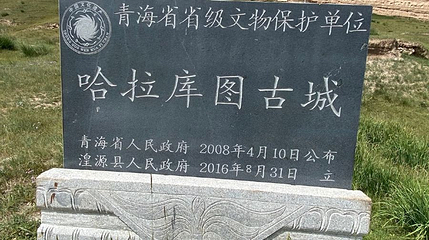 青海省省级文物保护单位
哈拉库图古城
青海省人民政府 2008年4月10日公布
湟源县人民政府 2016年8月31日 立